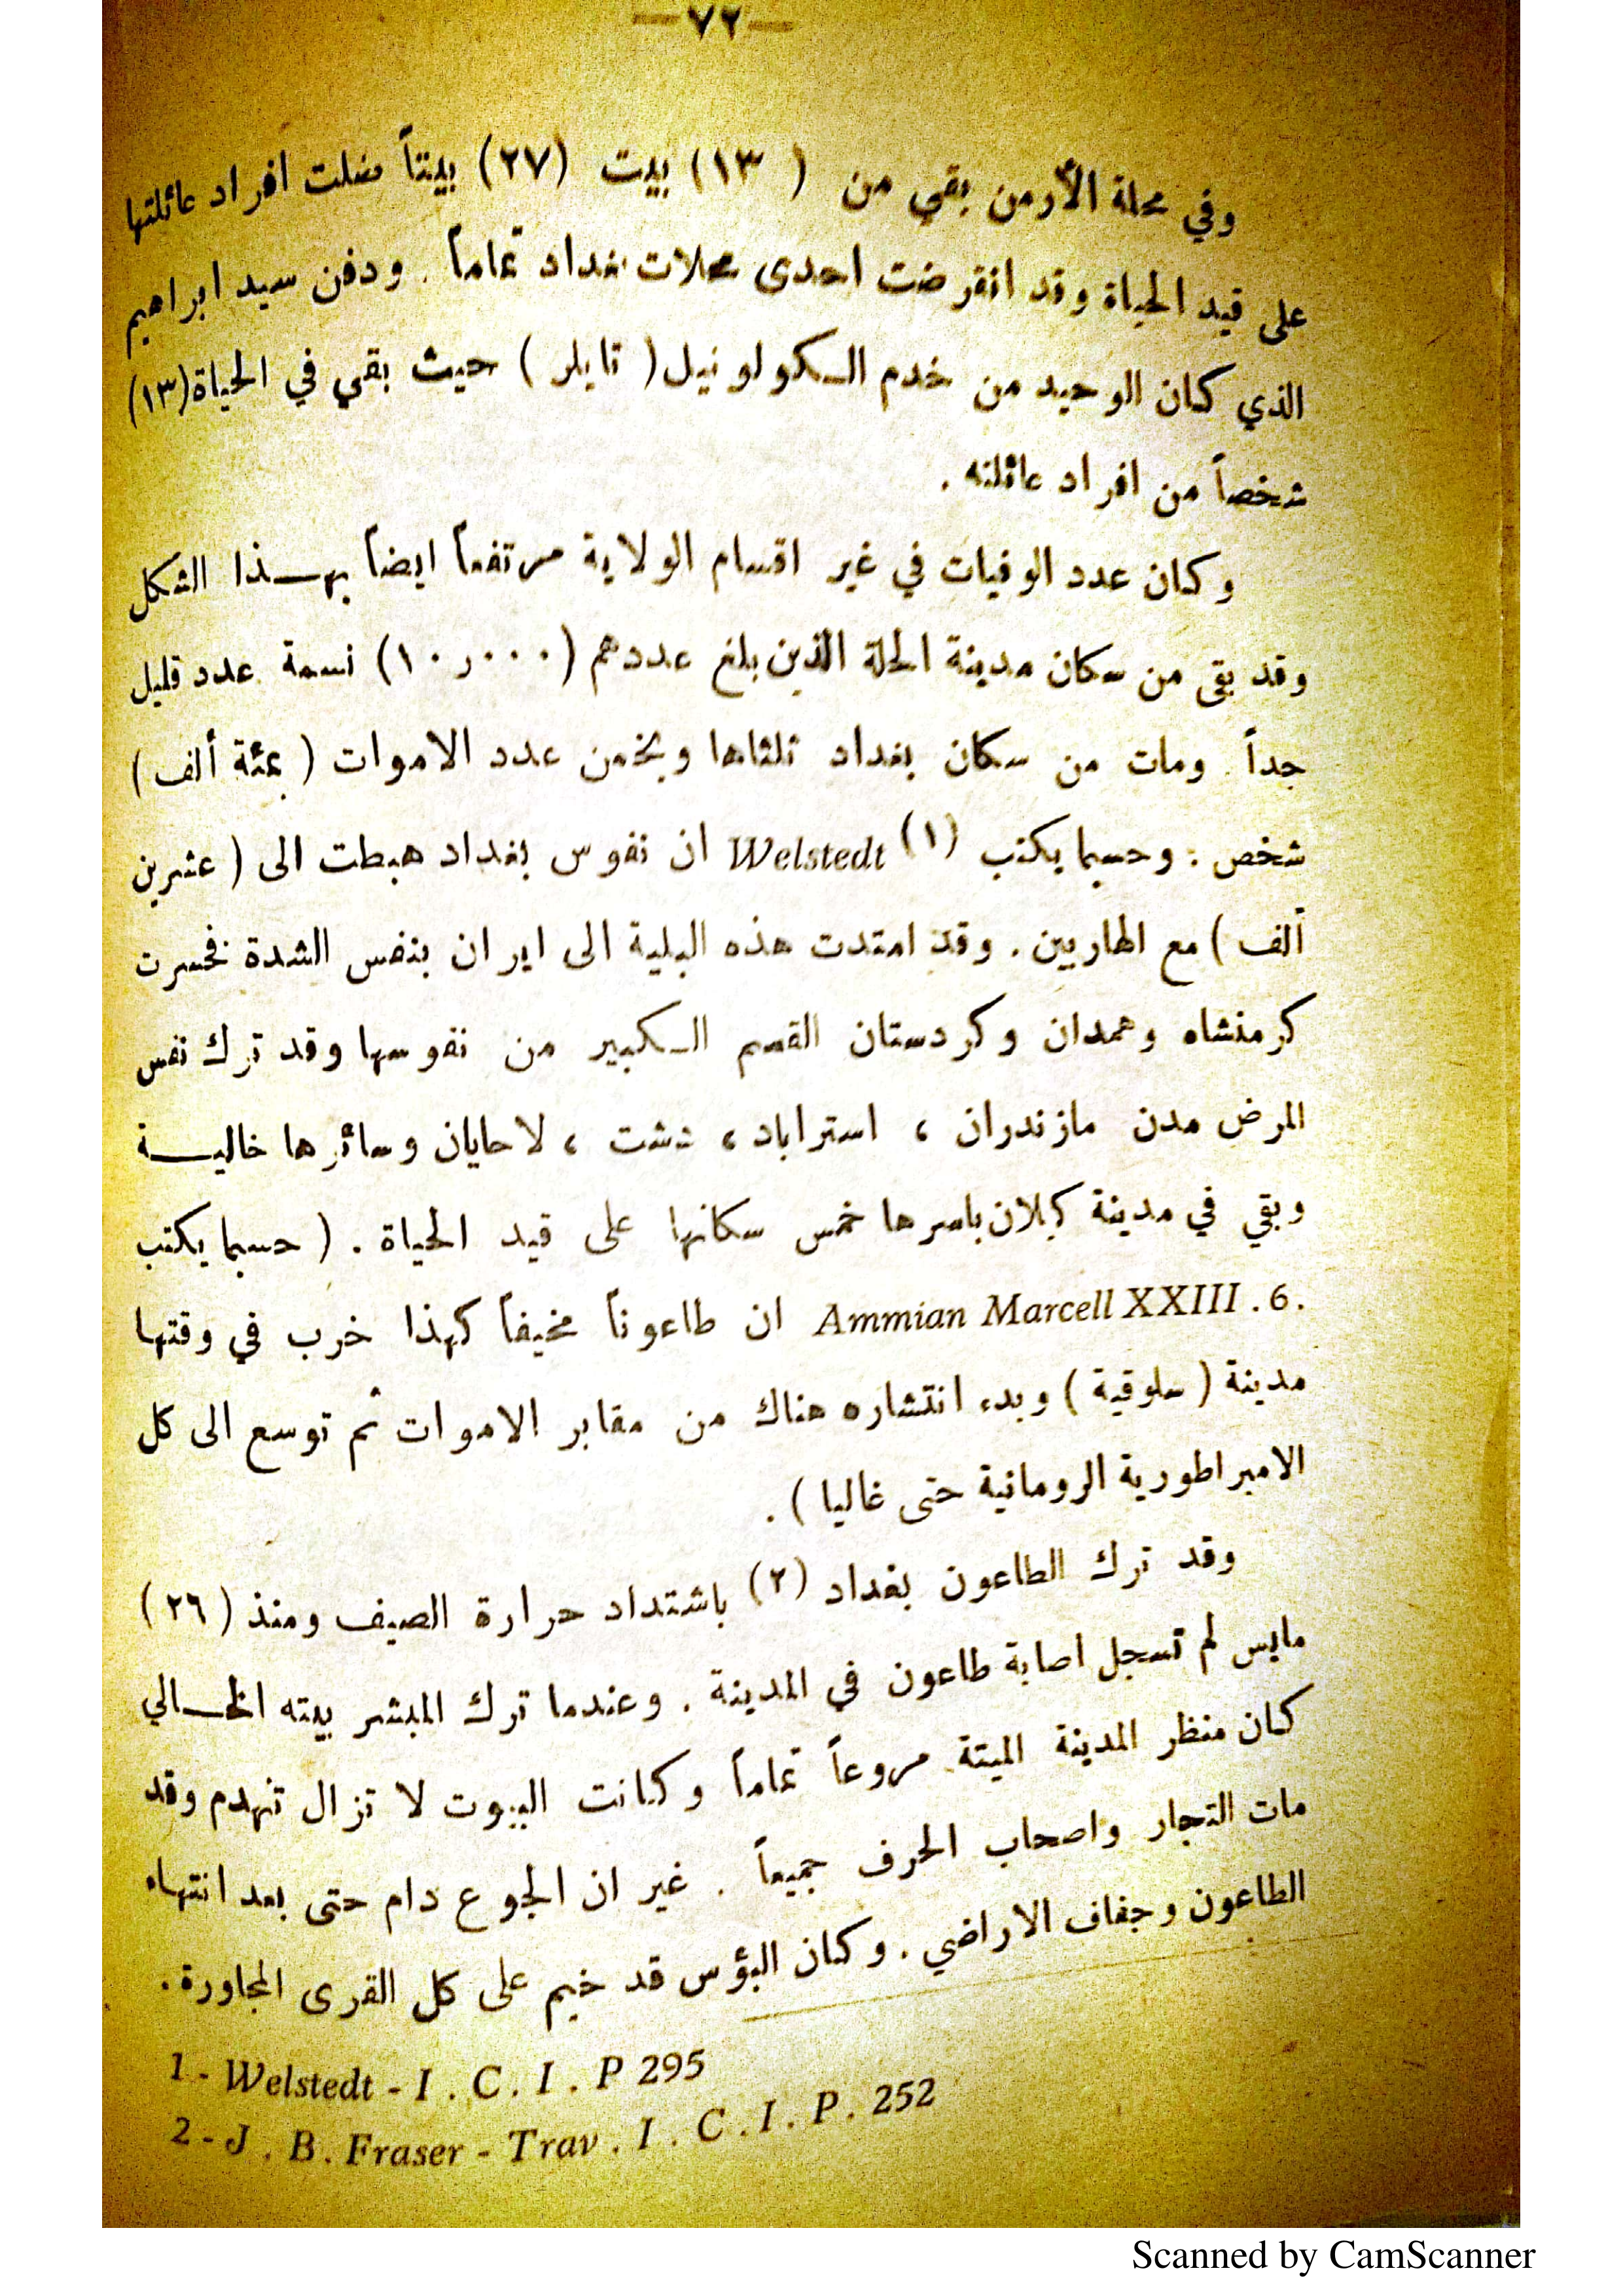 —٧٢—
وفي محلة الأرمن بقي من ( ١٣) بيت (٢٧) بيتاً ضلت افراد عائلتها
على قيد الحياة وقد انقرضت احدى محلات بغداد تماماً . ودفن سيد ابراهيم
الذي كان الوحيد من خدم الـكولونيل ( تايلر ) حيث بقي في الحياة (١٣)
شخصاً من افراد عائلته .
وكان عدد الوفيات في غير اقسام الولاية مرتفعاً ايضاً بهـذا الشكل
وقد بقى من سكان مدينة الحلة الذين بلغ عددهم (١٠٫٠٠٠) نسمة عدد قليل
جداً . ومات من سكان بغداد ثلثاها ويخمن عدد الاموات ( بمئة ألف )
شخص : وحسبما يكتب (١) Welstedt ان نفوس بغداد هبطت الى ( عشرين
ألف ) مع الهاربين . وقد امتدت هذه البلية الى ايران بنفس الشدة فخسرت
كرمنشاه وهمدان وكردستان القسم الـكبير من نفوسها وقد ترك نفس
المرض مدن مازندران ، استراباد ، دشت ، لاحايان وسائرها خاليـة
وبقي في مدينة كيلان باسرها خمس سكانها على قيد الحياة . ( حسبما يكتب
Ammian Marcell XXIII . 6. ان طاعوناً مخيفاً كهذا خرب في وقتها
مدينة ( سلوقية ) وبدء انتشاره هناك من مقابر الاموات ثم توسع الى كل
الامبراطورية الرومانية حتى غاليا ) .
وقد ترك الطاعون بغداد (٢) باشتداد حرارة الصيف ومنذ (٢٦)
مايس لم تسجل اصابة طاعون في المدينة . وعندما ترك المبشر بيته الخـالي
كان منظر المدينة الميتة مروعاً تماماً وكانت البيوت لا تزال تنهدم وقد
مات التجار واصحاب الحرف جميعاً . غير ان الجوع دام حتى بعد انتهاء
الطاعون وجفاف الاراضي . وكان البؤس قد خيم على كل القرى المجاورة .
1 - Welstedt - I . C . I . P 295
2 - J . B . Fraser - Trav . I . C . I . P . 252
Scanned by CamScanner